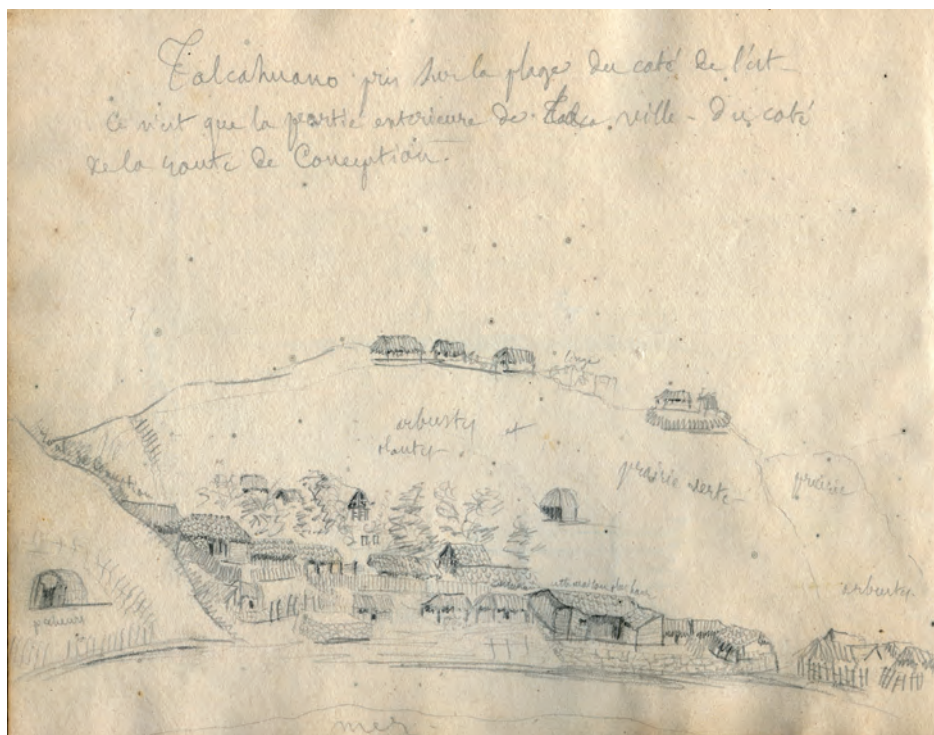 Talcahuano pris sur la plage du coté de l'est
Ce n'est que la partie exterieure de ville - du coté
de la route de Conception.
linge
arbustes et
plantes
prairie verte
prairie
arbustes
pecheurs
mer